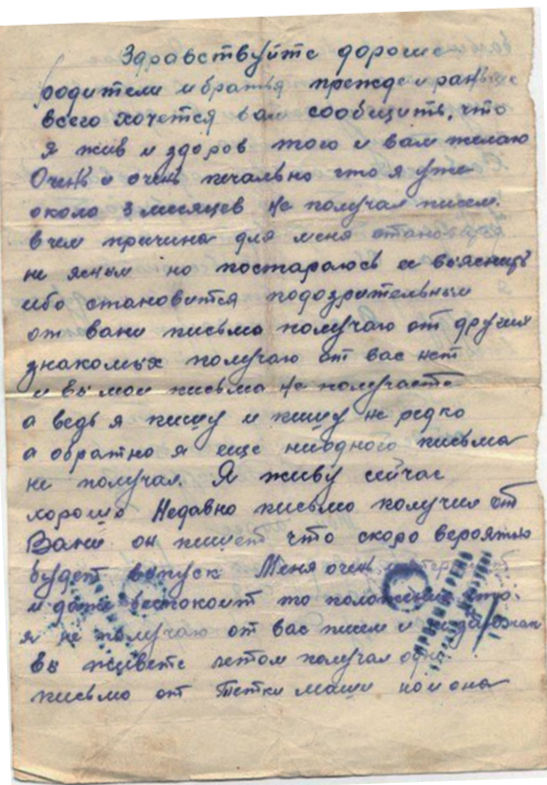 Здравствуйте дорогие
родители и братья прежде и раньше
всего хочется вам сообщить, что
я жив и здоров того и вам желаю
Очень и очень печально что я уже
около 3 месяцев не получал писем.
в чем причина для меня становится
не ясным но постараюсь выяснить
ибо становится подозрительным
от Вани письмо получаю от других
знакомых получаю от вас нет
и вы мои письма не получаете
а ведь я пишу и пишу не редко
а обратно я еще ниодного письма
не получал. Я живу сейчас
хорошо Недавно письмо получил от
Вани он пишет что скоро вероятно
будет выпуск Меня очень
и даже беспокоит то положение что
я не получаю от вас писем и как
вы живете летом получал одно
письмо от Тетки Маши но и она